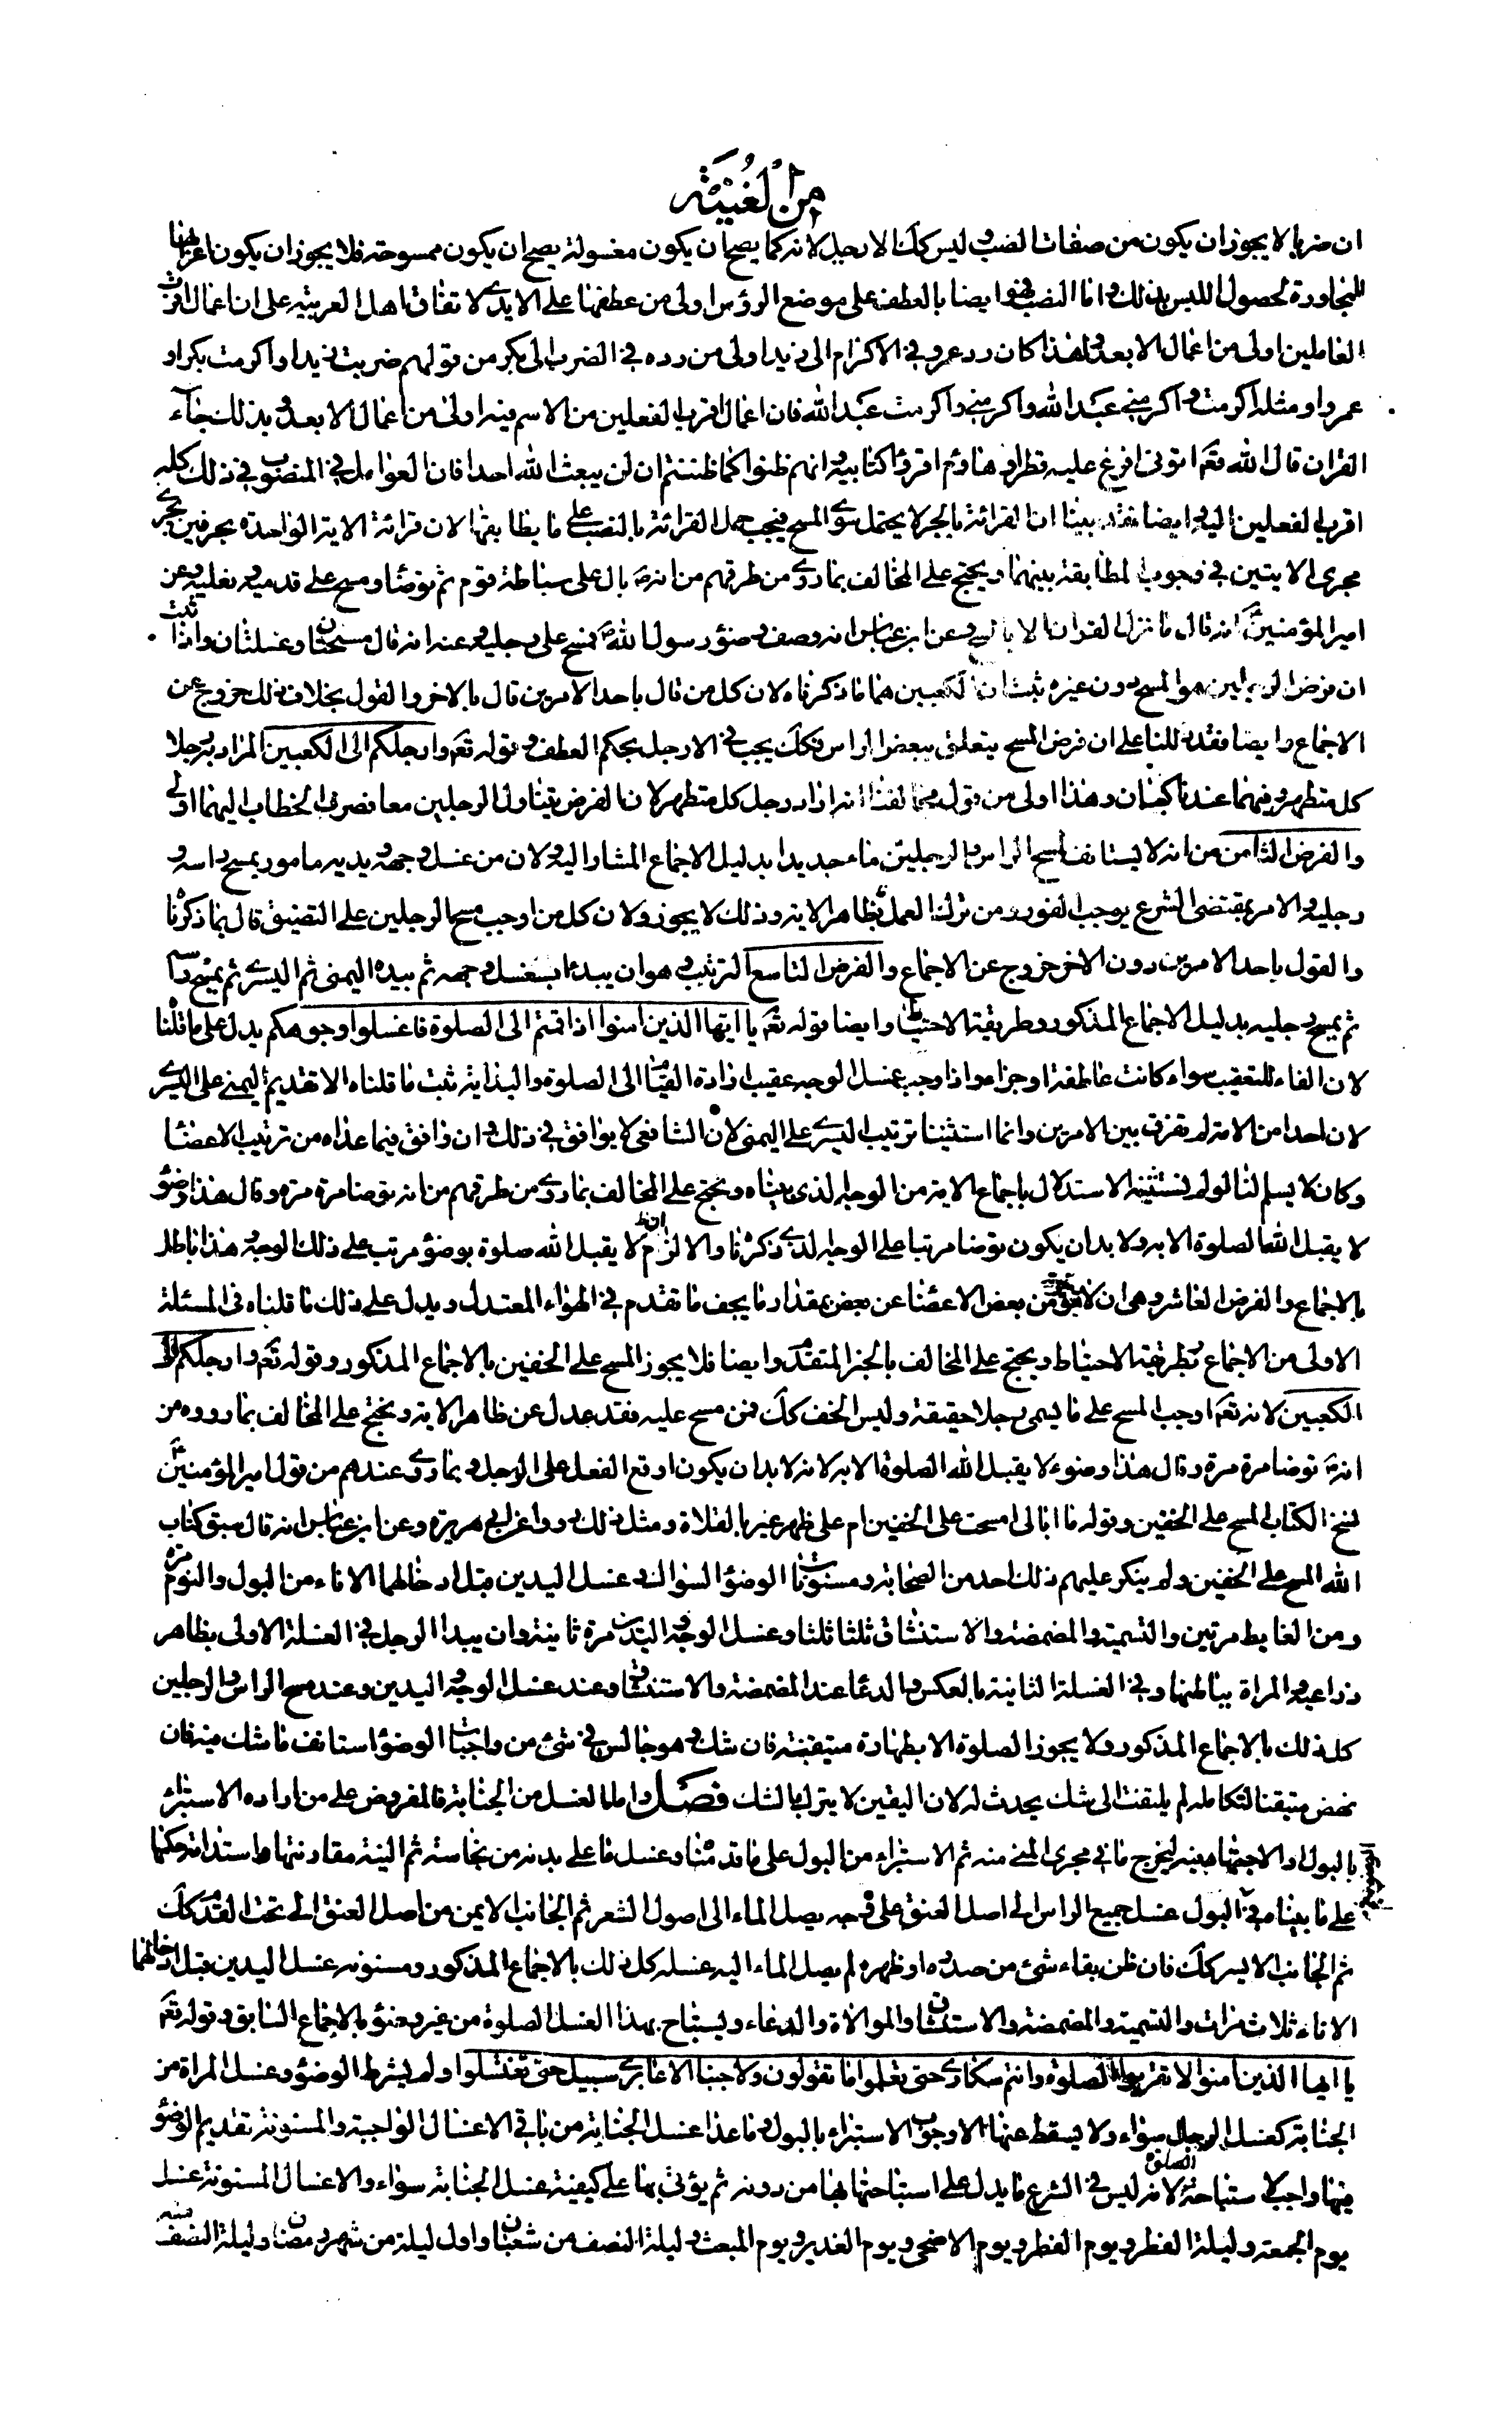 من الغنية
ان ضربا لا يجوز ان يكون من صفات الضب وليس كك الارجل لانه كما يصح ان يكون مغسولة يصح ان يكون ممسوحة فلا يجوز ان يكون اعرابها
للمجاورة لحصول اللبس بذلك واما النصب فهو ايضا بالعطف على موضع الرؤس اولى من عطفها على الايدي لاتفاق اهل العربية على ان اعمال اقرب
العاملين اولى من اعمال الابعد ولهذا كان رد عمرو في الاكرام الى زيد اولى من رده في الضرب الى بكر من قولهم ضربت زيدا واكرمت بكرا و
عمروا ومثله اكرمت واكرمني عبد الله واكرمني واكرمت عبد الله فان اعمال اقرب الفعلين من الاسم فيه اولى من اعمال الابعد وبذلك جاء
القران قال الله تعم اتوني افرغ عليه قطرا وهاؤم اقرؤا كتابيه وانهم ظنوا كما ظننتم ان لن يبعث الله احدا فان العوامل في المنصوب في ذلك كله
اقرب الفعلين اليه وايضا فقد بينا ان القرائة بالجر لا يحتمل سوى المسح فيجب حمل القرائة بالنصب على ما يطابقها لان قرائة الاية الواحدة بحرفين يجري
مجرى الايتين في وجوب المطابقة بينهما ويحتج على المخالف بما روي من طرقهم من انه بال على سباطة قوم ثم توضأ ومسح على قدميه ونعليه وعن
امير المؤمنين انه قال ما نزل القران الا بالمسح وعن ابن عباس انه وصف وضؤ رسول الله فمسح على رجليه وعنه انه قال مسحتان وغسلتان واذا ثبت
ان فرض الرجلين هو المسح دون غيره ثبت ان الكعبين هما ما ذكرناه لان كل من قال باحد الامرين قال بالاخر والقول بخلاف ذلك خروج عن
الاجماع وايضا فقد دللنا على ان فرض المسح يتعلق ببعض الراس فكك يجب في الارجل بحكم العطف وقوله تعم وارجلكم الى الكعبين المراد به رجلا
كل متطهر وفيهما عندنا كعبان وهذا اولى من قول مخالفنا انه اراد رجل كل متطهر لان الفرض يتناول الرجلين معا فصرف الخطاب اليهما اولى
والفرض الثامن من انه لا يستانف لمسح الراس والرجلين ماء جديدا بدليل الاجماع المشار اليه ولان من غسل وجهه ويديه مامور بمسح راسه و
رجليه والامر بمقتضى الشرع يوجب الفور ومن ترك العمل بظاهر الاية وذلك لا يجوز ولان كل من اوجب مسح الرجلين على التضييق قال بما ذكرنا
والقول باحد الامرين دون الاخر خروج عن الاجماع والفرض التاسع الترتيب وهو ان يبدء بغسل وجهه ثم بيده اليمنى ثم اليسرى ثم يمسح راسه
ثم يمسح رجليه بدليل الاجماع المذكور وطريقة الاحتياط وايضا قوله تعم يا ايها الذين امنوا اذا قمتم الى الصلوة فاغسلوا وجوهكم يدل على ما قلنا
لان الفاء للتعقيب سواء كانت عاطفة او جزاء واذا وجب غسل الوجه عقيب ارادة القيام الى الصلوة والبداية به ثبت ما قلناه الا تقديم اليمنى على اليسرى
لان احدا من الامة لم تفرق بين الامرين وانما استثنينا ترتيب اليسرى على اليمنى لان الشافعي لا يوافق في ذلك وان وافق فيما عداه من ترتيب الاعضاء
وكان لا يسلم لنا لو لم نستثنيه الاستدلال باجماع الاية من الوجه الذي بيناه ونحتج على المخالف بما روي من طرقهم من انه توضا مرة مرة وقال هذا وضؤ
لا يقبل الله الصلوة الا به ولا بد ان يكون توضا مرتبا على الوجه الذي ذكرنا والا لزم ان لا يقبل الله صلوة بوضؤ مرتب على ذلك الوجه وهذا باطل
بالاجماع والفرض العاشر وهي ان لا من بعض الاعضاء عن بعض بمقدار ما يجف ما تقدم في الهواء المعتدل ويدل على ذلك ما قلناه في المسئلة
الاولى من الاجماع وطريقة الاحتياط ويحتج على المخالف بالخبر المتقدم وايضا فلا يجوز المسح على الخفين بالاجماع المذكور وقوله تعم وارجلكم الى
الكعبين لانه تعم اوجب المسح على ما يسمى رجلا حقيقة وليس الخف كك فمن مسح عليه فقد عدل عن ظاهر الاية ونحتج على المخالف بما رووه من
انه توضا مرة مرة وقال هذا وضوء لا يقبل الله الصلوة الا به لانه لا بد ان يكون اوقع الفعل على الرجل وبما روي عندهم من قول امير المؤمنين
نسخ الكتاب المسح على الخفين وقوله ما ابالي امسحت على الخفين ام على ظهر عير بالفلاة ومثل ذلك رووا عن ابي هريرة وعن ابن عباس انه قال سبق كتاب
الله المسح على الخفين ولم ينكر عليهم ذلك احد من الصحابة ومسنونات الوضؤ السواك وغسل اليدين قبل ادخالهما الاناء من البول والنوم مرة
ومن الغايط مرتين والتسمية والمضمضة والاستنشاق ثلثا ثلثا وغسل الوجه واليدين مرة ثانية وان يبدا الرجل في الغسلة الاولى بظاهر
ذراعيه والمراة بباطنهما وفي الغسلة الثانية بالعكس والدعاء عند المضمضة والاستنشاق وعند غسل الوجه واليدين وعند مسح الراس والرجلين
كل ذلك بالاجماع المذكور ولا يجوز الصلوة الا بطهارة متيقنة فان شك وهو جالس في شئ من واجبات الوضؤ استانف ما شك فيه فان
نهض متيقنا لتكامله لم يلتفت الى شك يحدث له لان اليقين لا يترك بالشك فصل واما الغسل من الجنابة فالمفروض على من اراده الاستبراء
بالبول او الاجتهاد فيه ليخرج ما في مجرى المني منه ثم الاستبراء من البول على ما قدمنا وغسل ما على بدنه من نجاسة ثم النية مقارنتها واستدامة حكمها
على ما بيناه في البول غسل جميع الراس الى اصل العنق على وجه يصل الماء الى اصول الشعر ثم الجانب الايمن من اصل العنق الى تحت القدم كك
ثم الجانب الايسر كك فان ظن بقاء شئ من صدره او ظهره لم يصل الماء اليه غسله كل ذلك بالاجماع المذكور ومسنونه غسل اليدين قبل ادخالهما
الاناء ثلاث مرات والتسمية والمضمضة والاستنشاق والموالاة والدعاء ويستباح بهذا الغسل الصلوة من غير وضؤ بالاجماع السابق وقوله تعم
يا ايها الذين امنوا لا تقربوا الصلوة وانتم سكارى حتى تعلموا ما تقولون ولا جنبا الا عابري سبيل حتى تغتسلوا ولم يشرط الوضؤ وغسل المراة من
الجنابة كغسل الرجل سواء ولا يسقط عنها الا وجوب الاستبراء بالبول وما عدا غسل الجنابة من باقي الاغسال الواجبة والمسنونة تقديم الوضؤ
فيها واجب لاستباحة الصلوة لانه ليس في الشرع ما يدل على استباحتها بها من دونه ثم يؤتى بها على كيفية غسل الجنابة سواء والاغسال المسنونة غسل
يوم الجمعة وليلة الفطر ويوم الفطر ويوم الاضحى ويوم الغدير ويوم المبعث وليلة النصف من شعبان واول ليلة من شهر رمضان وليلة النصف منه